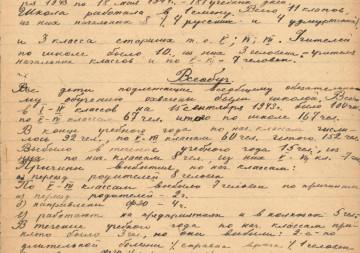 Школа работала в 1 смену. Всего 11 классов,
из них начальных 8 / 4 русских и 4 удмуртских /
и 3 класса старших т.е. V; VI; VII. Учителей
по школе было 10, из них 3 человека учителя
начальных классов и по V - VII - 7 человек.
Всеобуч.
Все дети подлежащие всеобщему обязательно
му обучению охвачены были школой. Всего
в I - III классов на 15 сентября 1943 г. было 100 чел
по V - VII классам 67 чел. итого по школе 167 чел.
В конце учебного года по нач. классам числи
лось 92 чел., по V - VII классам 60 чел. Всего 152 чел
Выбыло в течение учебного года 15 чел., из
них по нач. классам 8 чел., из них V - VII кл. - 7
Причины выбытия по нач. классам:
а) переезд родителей 8 человек
По V - VII классам выбыло 7 человек по причинам
а) переезд родителей - 2 ч.
б) направлены ФЗО - 4 ч.
в) работают на предприятиях и в колхозах 5 чел
В течение учебного года по нач. классам при
было 3 чел, но они выбыли: 2 - е - по
длительной болезни / справка врача / 1 человек